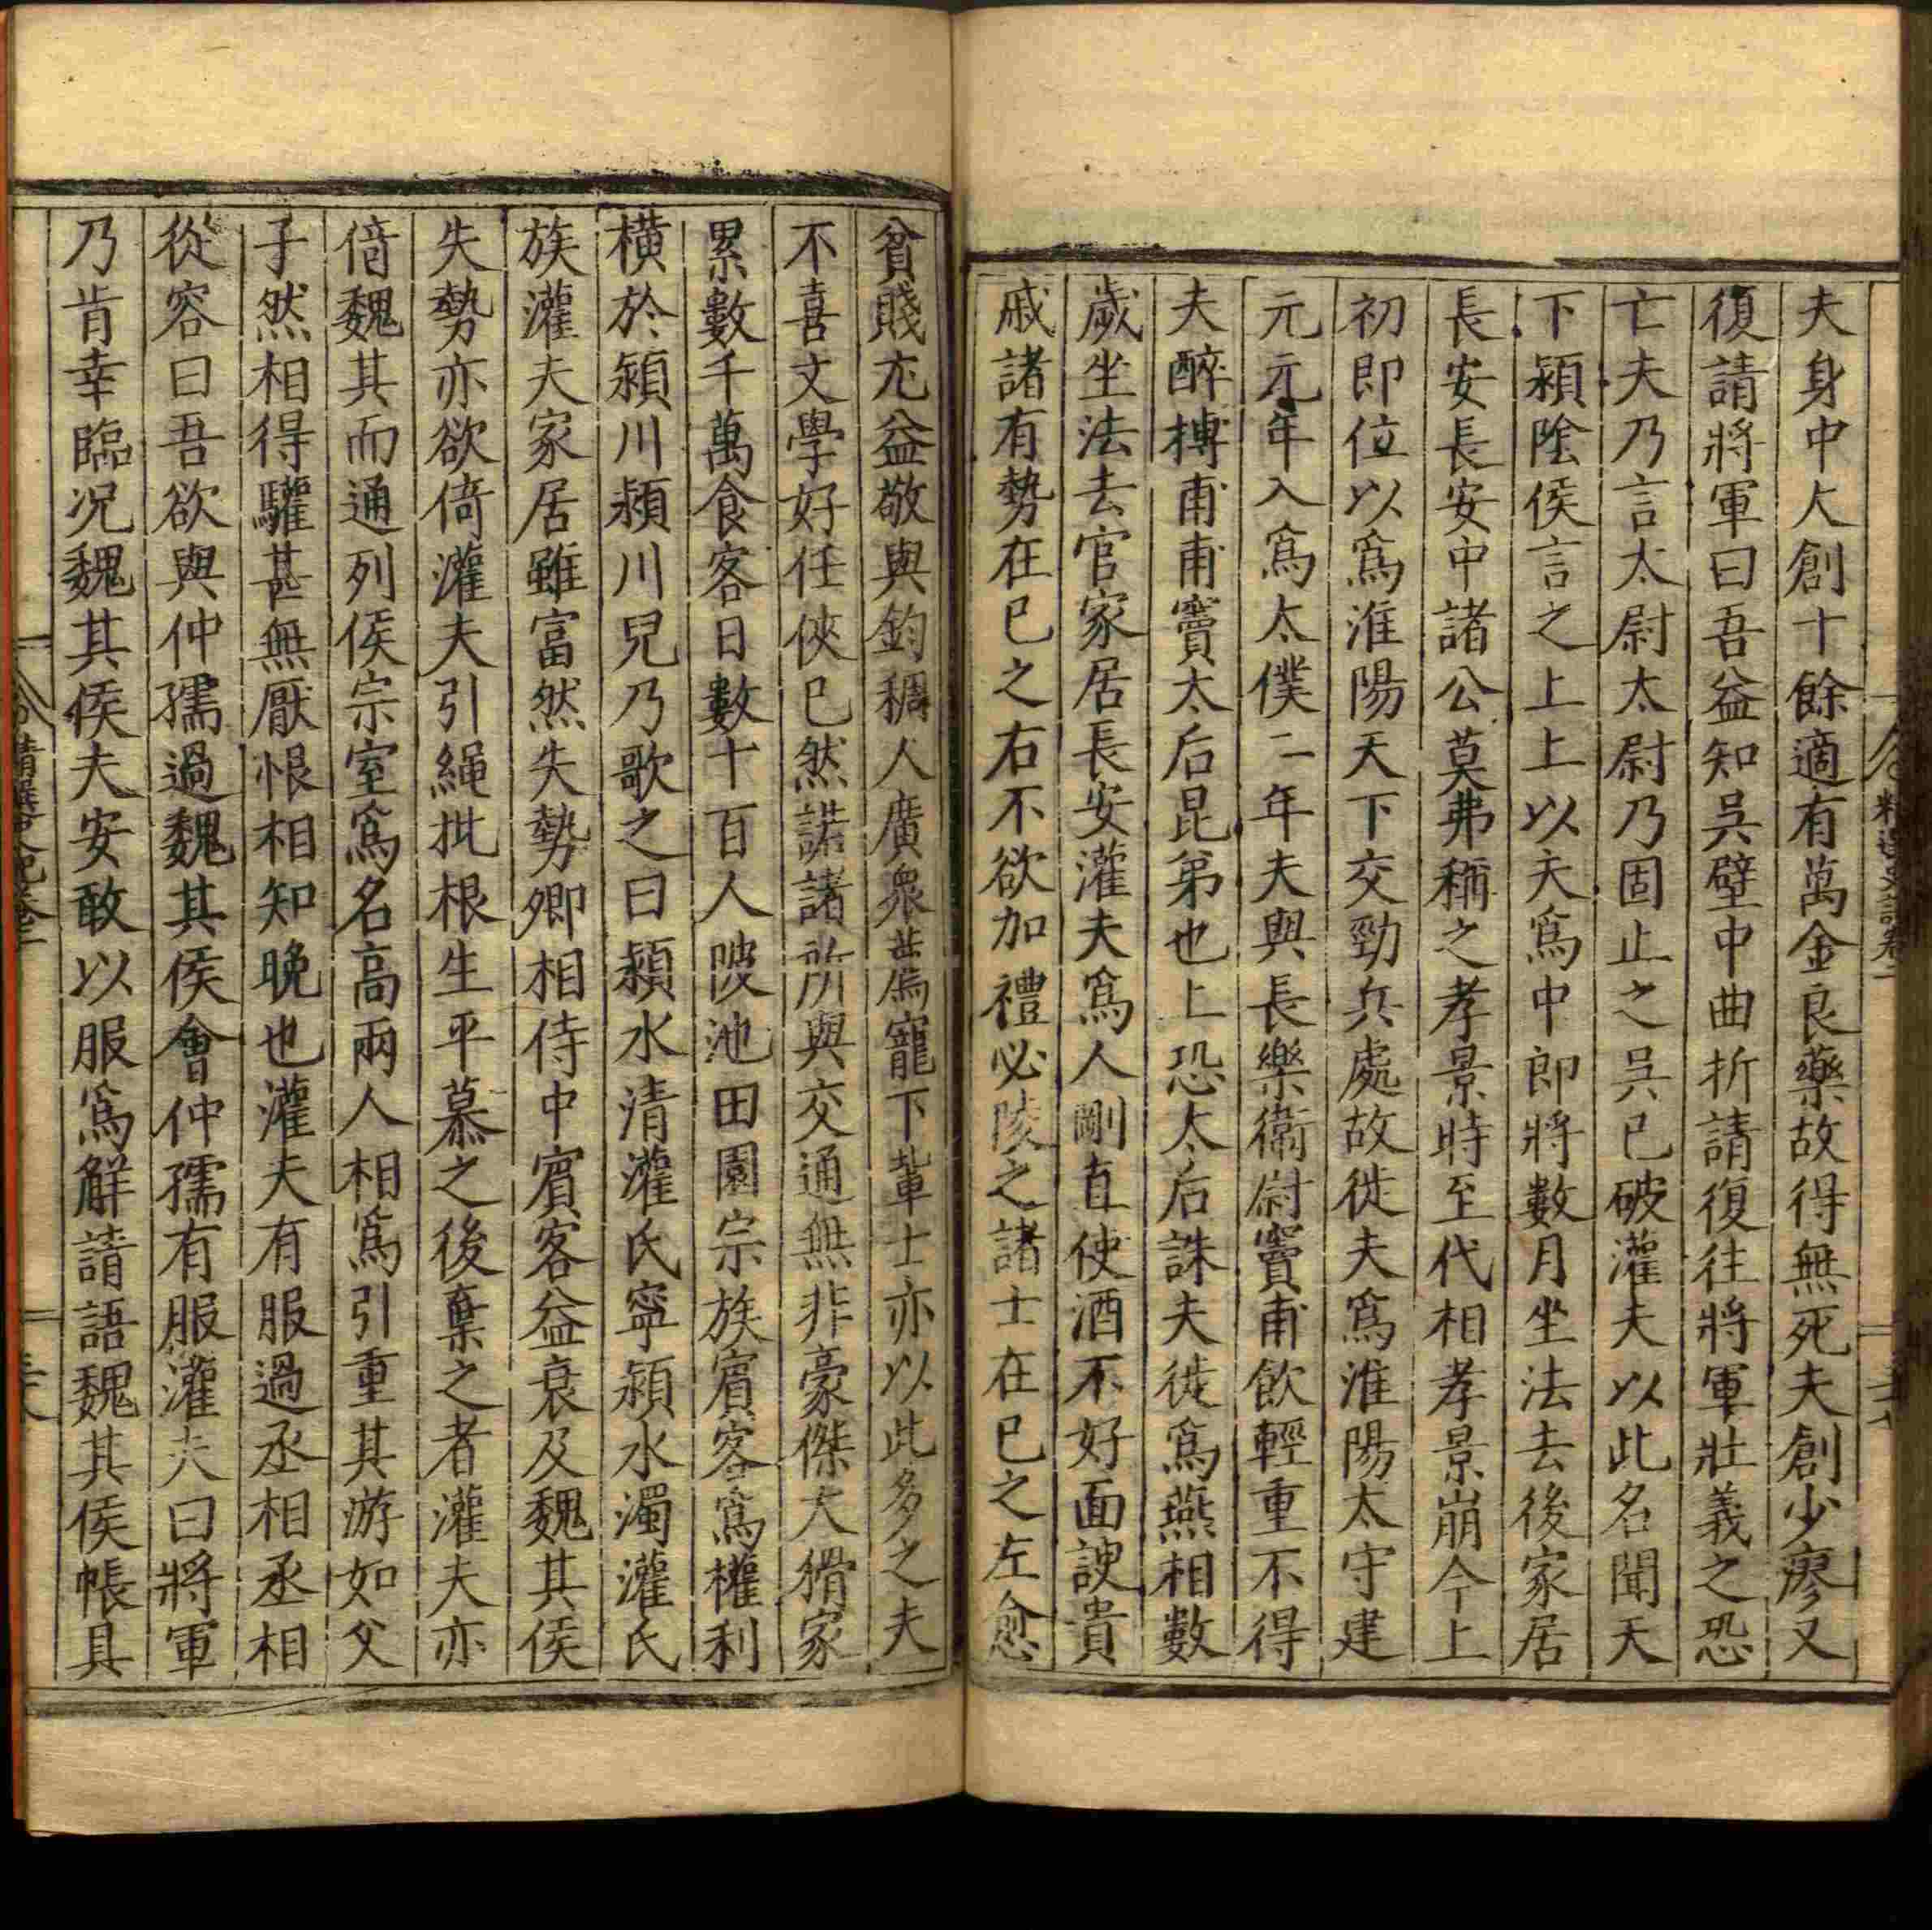 夫身中大創十餘適有萬金良藥故得無死夫創少瘳又
復請將軍曰吾益知吳壁中曲折請復往將軍壯義之恐
亡夫乃言太尉太尉乃固止之吳已破灌夫以此名聞天
下潁陰侯言之上上以夫爲中郎將數月坐法去後家居
長安長安中諸公莫弗稱之孝景時至代相孝景崩今上
初即位以爲淮陽天下交勁兵處故徙夫爲淮陽太守建
元元年入爲太僕二年夫與長樂衛尉竇甫飲輕重不得
夫醉搏甫甫竇太后昆弟也上恐太后誅夫徙爲燕相數
歲坐法去官家居長安灌夫爲人剛直使酒不好面諛貴
戚諸有勢在已之右不欲加禮必陵之諸士在已之左愈
貧賤尤益敬與鈞稠人廣衆薦寵下輩士亦以此多之夫
不喜文學好任俠已然諾諸所與交通無非豪傑大猾家
累數千萬食客日數十百人陂池田園宗族賓客爲權利
橫於潁川潁川兒乃歌之曰潁水清灌氏寧潁水濁灌氏
族灌夫家居雖富然失勢卿相侍中賓客益衰及魏其侯
失勢亦欲倚灌夫引繩批根生平慕之後棄之者灌夫亦
倚魏其而通列侯宗室爲名高兩人相爲引重其游如父
子然相得驩甚無厭恨相知晚也灌夫有服過丞相丞相
從容曰吾欲與仲孺過魏其侯會仲孺有服灌夫曰將軍
乃肯幸臨况魏其侯夫安敢以服爲解請語魏其侯帳具